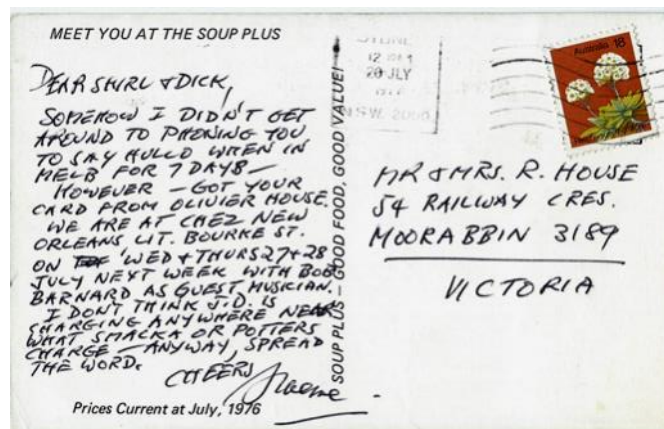 MEET YOU AT THE SOUP PLUS
DEAR SHIRL & DICK,
SOMEHOW I DIDN'T GET
AROUND TO PHONING YOU
TO SAY HULLO WHEN IN
MELB FOR 7 DAYS —
HOWEVER — GOT YOUR
CARD FROM OLIVIER HOUSE.
WE ARE AT CHEZ NEW
ORLEANS LIT. BOURKE ST.
ON WED & THURS 27 & 28
JULY NEXT WEEK WITH BOB
BARNARD AS GUEST MUSICIAN.
I DONT THINK J.D. IS
CHARGING ANYWHERE NEAR
WHAT SMACKA OR POTTERS
CHARGE — ANYWAY, SPREAD
THE WORD.
CHEERS
Graeme
Prices Current at July, 1976
SOUP PLUS — GOOD FOOD, GOOD VALUE!
SYDNEY
12
20 JLY
N.S.W. 2000
Australia 18
MR & MRS. R. HOUSE
54 RAILWAY CRES.
MOORABBIN 3189
VICTORIA